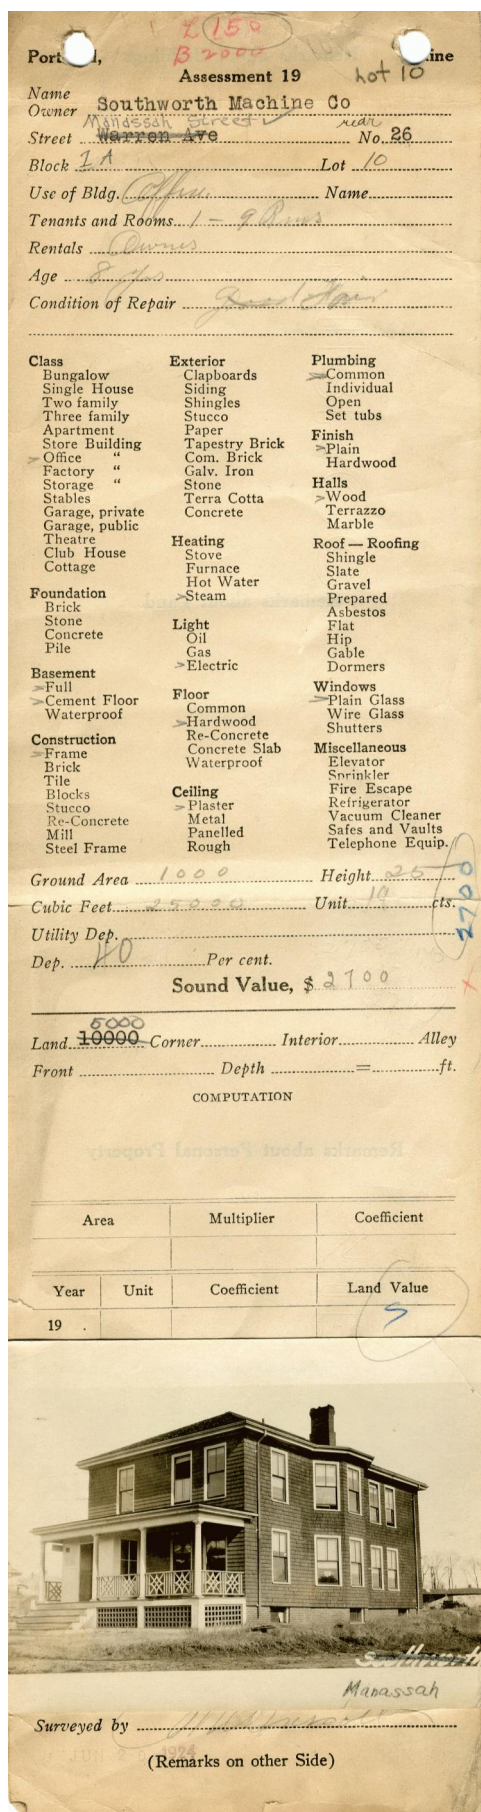 L 150
B 2000
Port d, ine
Assessment 19 Lot 10
Name
Owner Southworth Machine Co
Manassah Street rear
Street Warren Ave No. 26
Block 1 A Lot 10
Use of Bldg. Office Name
Tenants and Rooms 1 - 9 Rms
Rentals Owner
Age 8 yrs
Condition of Repair Good Fair
Class
Bungalow
Single House
Two family
Three family
Apartment
Store Building
Office "
Factory "
Storage "
Stables
Garage, private
Garage, public
Theatre
Club House
Cottage
Foundation
Brick
Stone
Concrete
Pile
Basement
Full
Cement Floor
Waterproof
Construction
Frame
Brick
Tile
Blocks
Stucco
Re-Concrete
Mill
Steel Frame
Exterior
Clapboards
Siding
Shingles
Stucco
Paper
Tapestry Brick
Com. Brick
Galv. Iron
Stone
Terra Cotta
Concrete
Heating
Stove
Furnace
Hot Water
Steam
Light
Oil
Gas
Electric
Floor
Common
Hardwood
Re-Concrete
Concrete Slab
Waterproof
Ceiling
Plaster
Metal
Panelled
Rough
Plumbing
Common
Individual
Open
Set tubs
Finish
Plain
Hardwood
Halls
Wood
Terrazzo
Marble
Roof — Roofing
Shingle
Slate
Gravel
Prepared
Asbestos
Flat
Hip
Gable
Dormers
Windows
Plain Glass
Wire Glass
Shutters
Miscellaneous
Elevator
Sprinkler
Fire Escape
Refrigerator
Vacuum Cleaner
Safes and Vaults
Telephone Equip.
Ground Area 1000 Height 25
Cubic Feet 25000 Unit 18 cts.
2700
Utility Dep.
Dep. 40 Per cent.
Sound Value, $ 2700
5000
Land 10000 Corner Interior Alley
Front Depth = ft.
COMPUTATION
Remarks about Personal Property
Area Multiplier Coefficient
Year Unit Coefficient Land Value
19 .
Manassah
Surveyed by
JUN 2 1924
(Remarks on other Side)